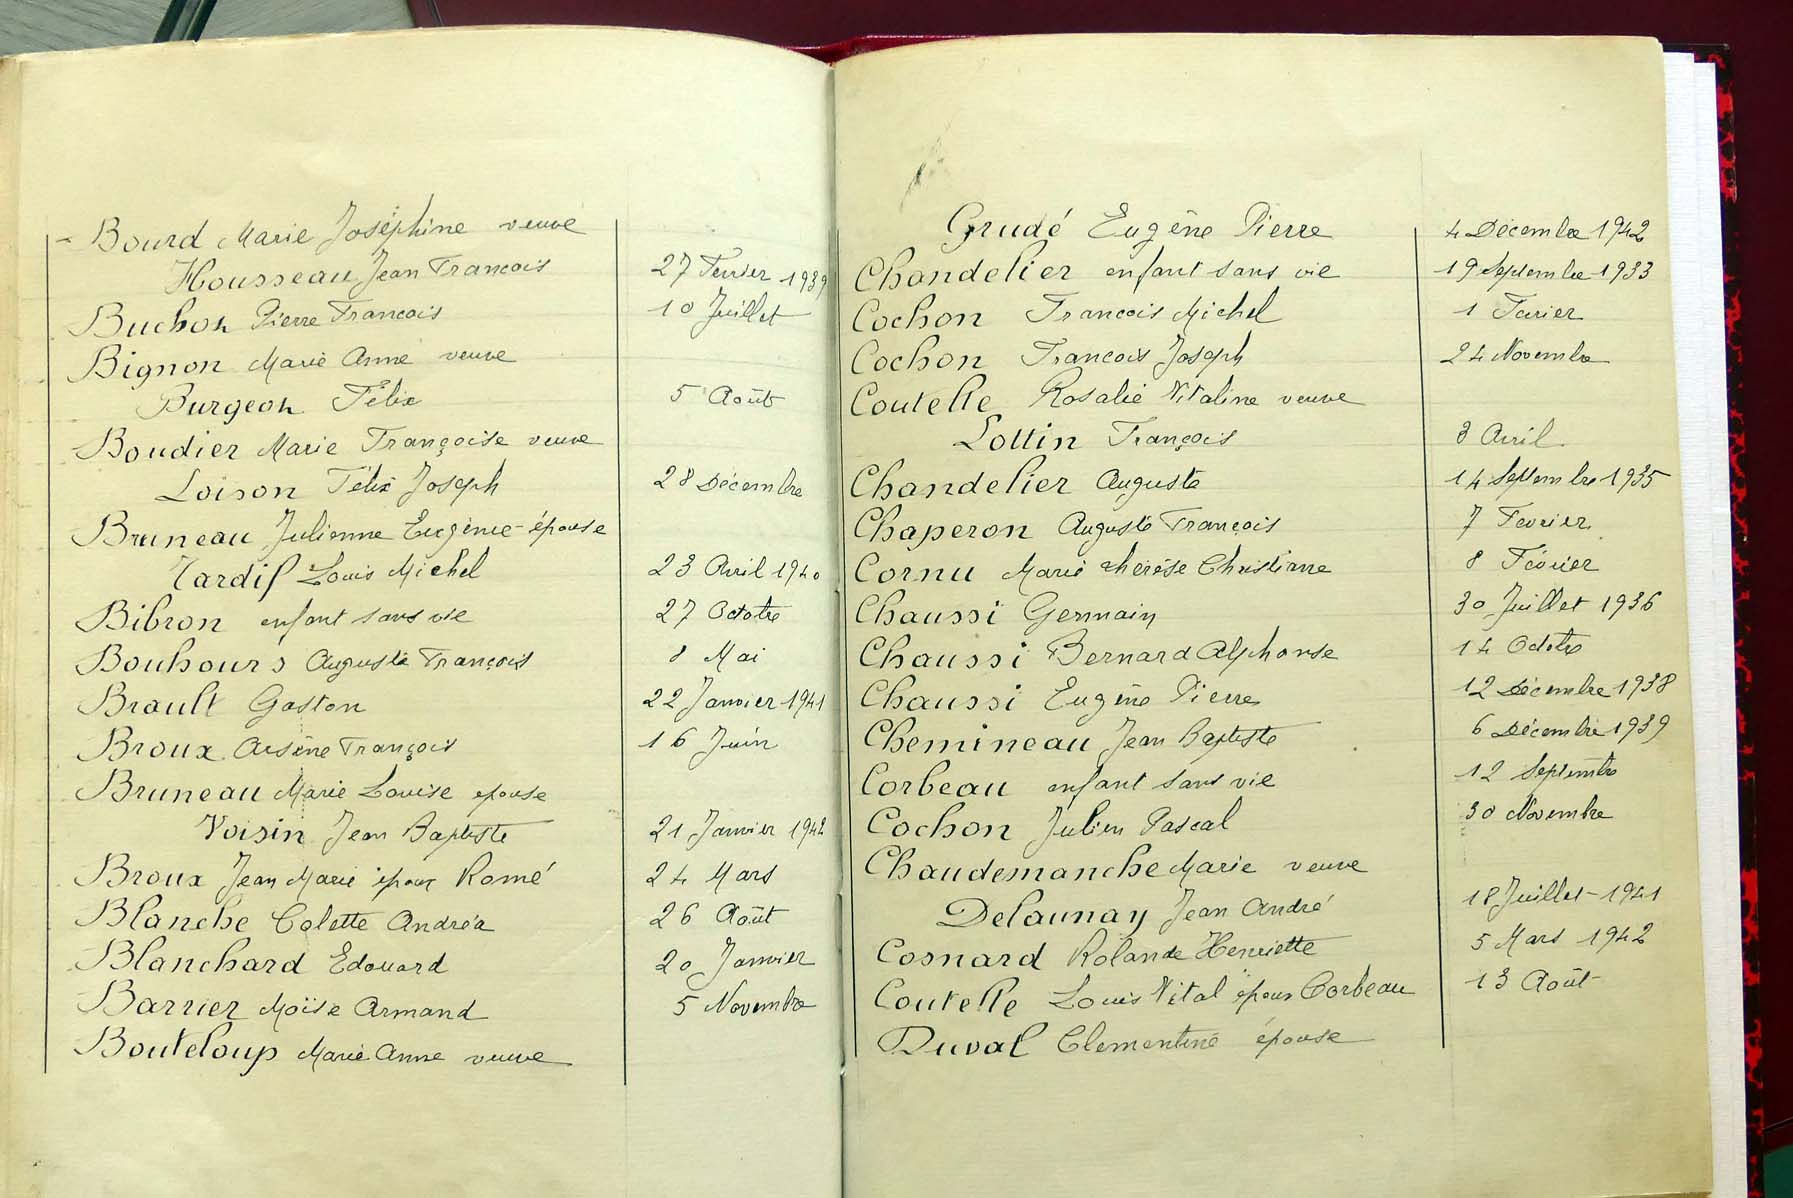 Bourd Marie Joséphine veuve
Housseau Jean Francois 27 Fevrier 1939
Buchon Pierre Francois 10 Juillet
Bignon Marie Anne veuve
Burgeon Félix 5 Août
Boudier Marie Françoise veuve
Loison Félix Joseph 28 Décembre
Bruneau Julienne Eugènie épouse
Tardif Louis Michel 23 Avril 1940
Bibron enfant sans vie 27 Octobre
Bouhours Auguste François 8 Mai
Brault Gaston 22 Janvier 1941
Broux Arsène François 16 Juin
Bruneau Marie Louise epouse
Voisin Jean Baptiste 21 Janvier 1942
Broux Jean Marie époux Romé 24 Mars
Blanche Colette Andréa 26 Août
Blanchard Edouard 20 Janvier
Barrier Moïse Armand 5 Novembre
Bouteloup Marie Anne veuve
Grudé Eugène Pierre 4 Décembre 1942
Chandelier enfant sans vie 19 Septembre 1933
Cochon Francois Michel 1 Fevrier
Cochon Francois Joseph 24 Novembre
Coutelle Rosalie Vitaline veuve
Lottin François 3 Avril
Chandelier Auguste 14 Septembre 1935
Chaperon Auguste François 7 Fevrier
Cornu Marie thérèse Christiane 8 Février
Chaussi Germain 30 Juillet 1936
Chaussi Bernard Alphonse 14 Octobre
Chaussi Eugène Pierre 12 Décembre 1938
Chemineau Jean Baptiste 6 Décembre 1939
Corbeau enfant sans vie 12 Septembre
Cochon Julien Pascal 30 Novembre
Chaudemanche Marie veuve
Delaunay Jean André 18 Juillet 1941
Cosnard Rolande Henriette 5 Mars 1942
Coutelle Louis Vital époux Corbeau 13 Août
Duval Clementine épouse